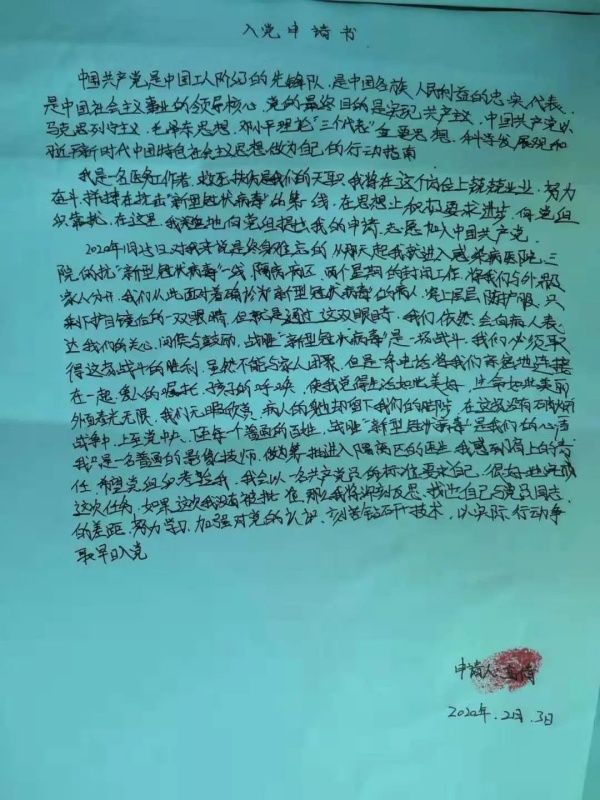 入党申请书
中国共产党是中国工人阶级的先锋队，是中国各族人民利益的忠实代表，
是中国社会主义事业的领导核心，党的最终目的是实现共产主义，中国共产党以
马克思列宁主义，毛泽东思想，邓小平理论"三个代表"重要思想，科学发展观和
习近平新时代中国特色社会主义思想做为自己的行动指南
我是名医务工作者，救死扶病是我们的天职，我将在这个岗位上兢兢业业，努力
奋斗，拼搏在抗击"新型冠状病毒"的第一线，在思想上积极要求进步，向党组
织靠拢，在这里，我郑重地向党组提出我的申请，志愿加入中国共产党。
2020年1月25日对我来说是终身难忘的，从那天起我就进入感染病医院，三
院的抗"新型冠状病毒"一线，隔离病区，两个星期的封闭工作，将我们与外界
家人分开，我们从此面对着确诊为"新型冠状病毒"的病人，穿上层层防护服，只
剩下护目镜后的一双眼睛，但就是通过这双眼睛，我们依然会向病人表
达我们的关心，问候与鼓励，战胜"新型冠状病毒"是一场战斗，我们必须取
得这场战斗的胜利，虽然不能与家人团聚，但是一条电话将我们紧密地连接
在一起，爱人的嘱托，孩子的呼唤，使我觉得生活如此美好，生命如此美丽
外面春光无限，我们无暇欣赏，病人的身边却留下我们的脚印，在这场没有硝烟的
战争中，上至党中央，下至每一个普通的百姓，战胜"新型冠状病毒"是我们的心声
我只是一名普通的影像技师，做为第一批进入隔离区的医生，我感到肩上的责
任，希望党组织考验我，我会以一名共产党员的标准要求自己，很好地完成
这次任务，如果这次我没有被批准，那么我将深刻反思，找出自己与党员同志
的差距，努力学习，加强对党的认识，刻苦钻研技术，以实际行动争
取早日入党
申请人
2020年.2月.3日